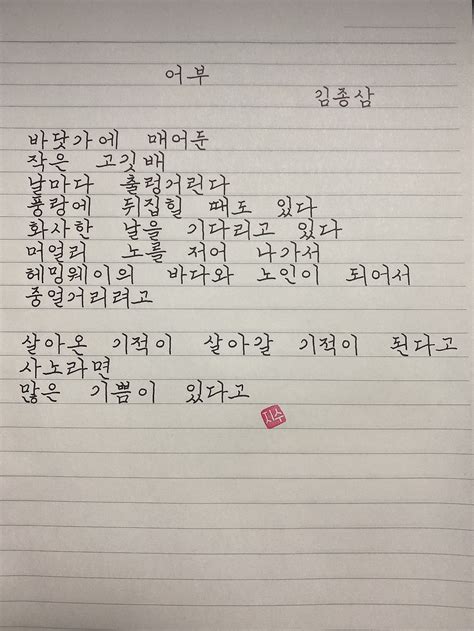 어부
김종삼
바닷가에 매어둔
작은 고깃배
날마다 출렁거린다
풍랑에 뒤집힐 때도 있다
화사한 날을 기다리고 있다
머얼리 노를 저어 나가서
헤밍웨이의 바다와 노인이 되어서
중얼거리려고
살아온 기적이 살아갈 기적이 된다고
사노라면
많은 기쁨이 있다고
지수